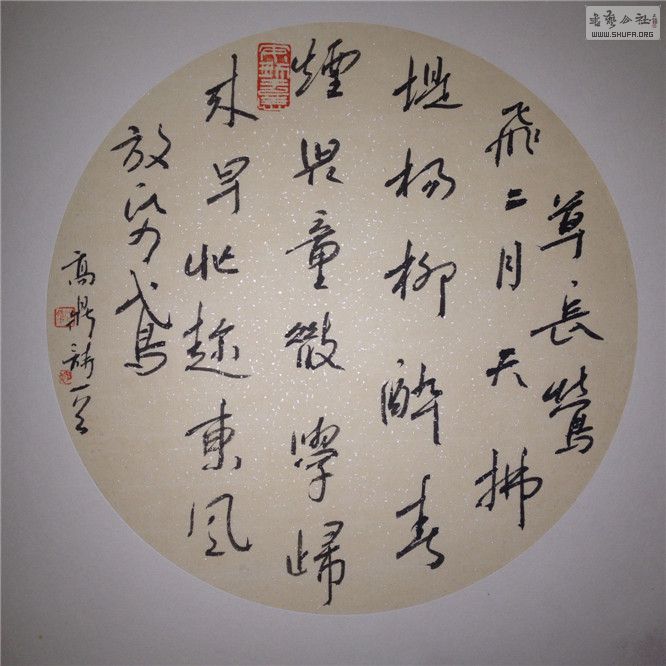 草長鶯
飛二月天拂
堤楊柳醉春
煙兒童散學歸
来早忙趁東風
放紙鳶
高鼎詩一首
書藝公社
WWW.SHUFA.ORG